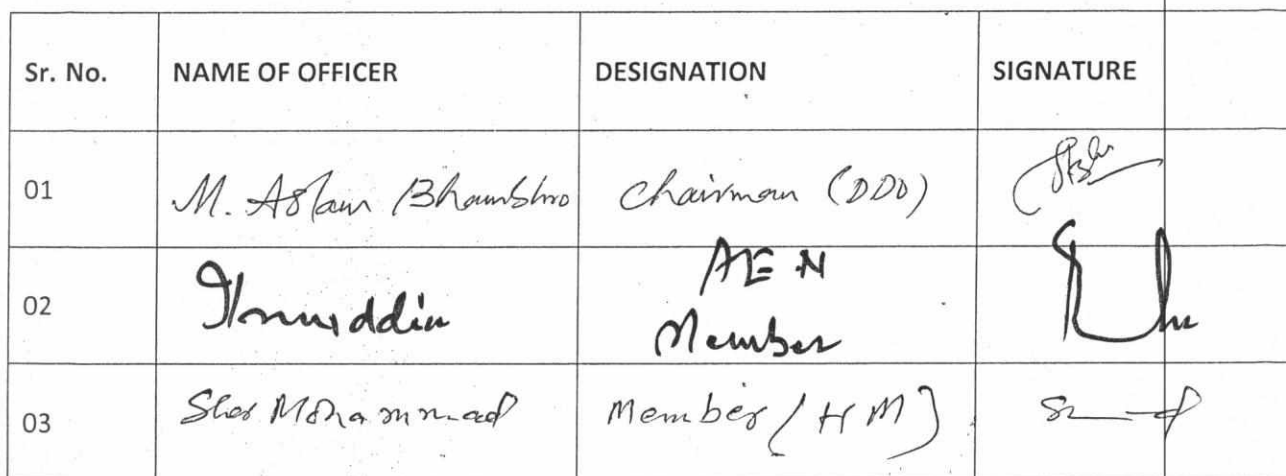 Sr. No. NAME OF OFFICER DESIGNATION SIGNATURE
01 M. Aslam Bhambhro Chairman (DDO)
02 AEN
Member
03 Sher Mohammad Member (HM)